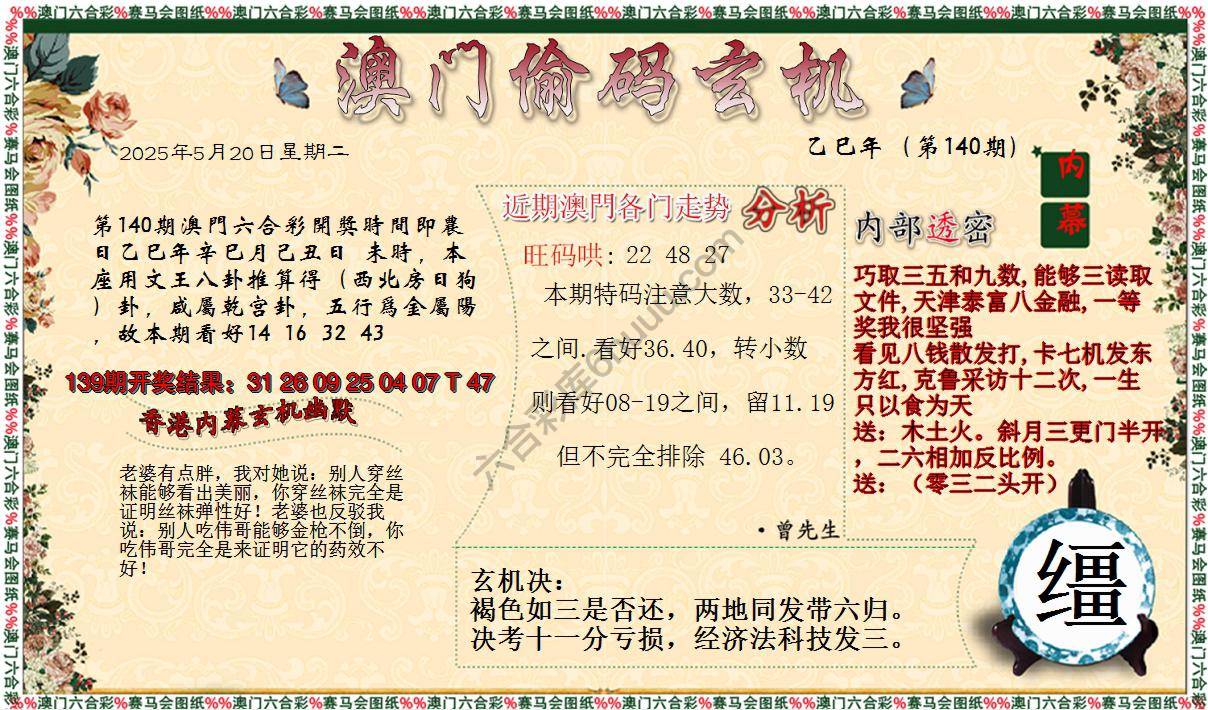 %%澳门六合彩%赛马会图纸%%澳门六合彩%赛马会图纸%%澳门六合彩%赛马会图纸%%澳门六合彩%赛马会图纸%%澳门六合彩%赛马会图纸%%澳门六合彩%赛马会图纸%%
澳门偷码玄机
2025年5月20日星期二
乙巳年（第140期）
第140期澳門六合彩開獎時間即農
日乙巳年辛巳月己丑日 未時，本
座用文王八卦推算得（西北房日狗
）卦，咸屬乾宫卦，五行爲金屬陽
，故本期看好14 16 32 43
139期开奖结果：31 26 09 25 04 07 T 47
香港内幕玄机幽默
老婆有点胖，我对她说：别人穿丝
袜能够看出美丽，你穿丝袜完全是
证明丝袜弹性好！老婆也反驳我
说：别人吃伟哥能够金枪不倒，你
吃伟哥完全是来证明它的药效不
好！
近期澳門各门走势 分析
旺码哄: 22 48 27
本期特码注意大数，33-42
之间.看好36.40，转小数
则看好08-19之间，留11.19
但不完全排除 46.03。
·曾先生
内部透密
内
幕
巧取三五和九数,能够三读取
文件,天津泰富八金融,一等
奖我很坚强
看见八钱散发打,卡七机发东
方红,克鲁采访十二次,一生
只以食为天
送：木土火。斜月三更门半开
，二六相加反比例。
送：（零三二头开）
玄机决：
褐色如三是否还，两地同发带六归。
决考十一分亏损，经济法科技发三。
缰
%%澳门六合彩%赛马会图纸%%澳门六合彩%赛马会图纸%%澳门六合彩%赛马会图纸%%澳门六合彩%赛马会图纸%%澳门六合彩%赛马会图纸%%澳门六合彩%赛马会图纸%%